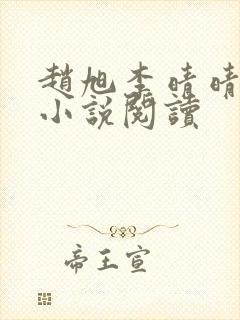 趙旭李晴晴
小說閱讀
帝王宣